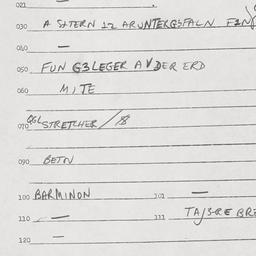 021
030 A SHTERN 12 ARUNTERGSFALN F2N
040 —
050 FUN G3LEGER AVDER ERD
060 MITE
070 QGL STRETCHER / 8
090 BETN
100 BARMINON 101 —
110 — 111 TAJSRE BRE
120 —